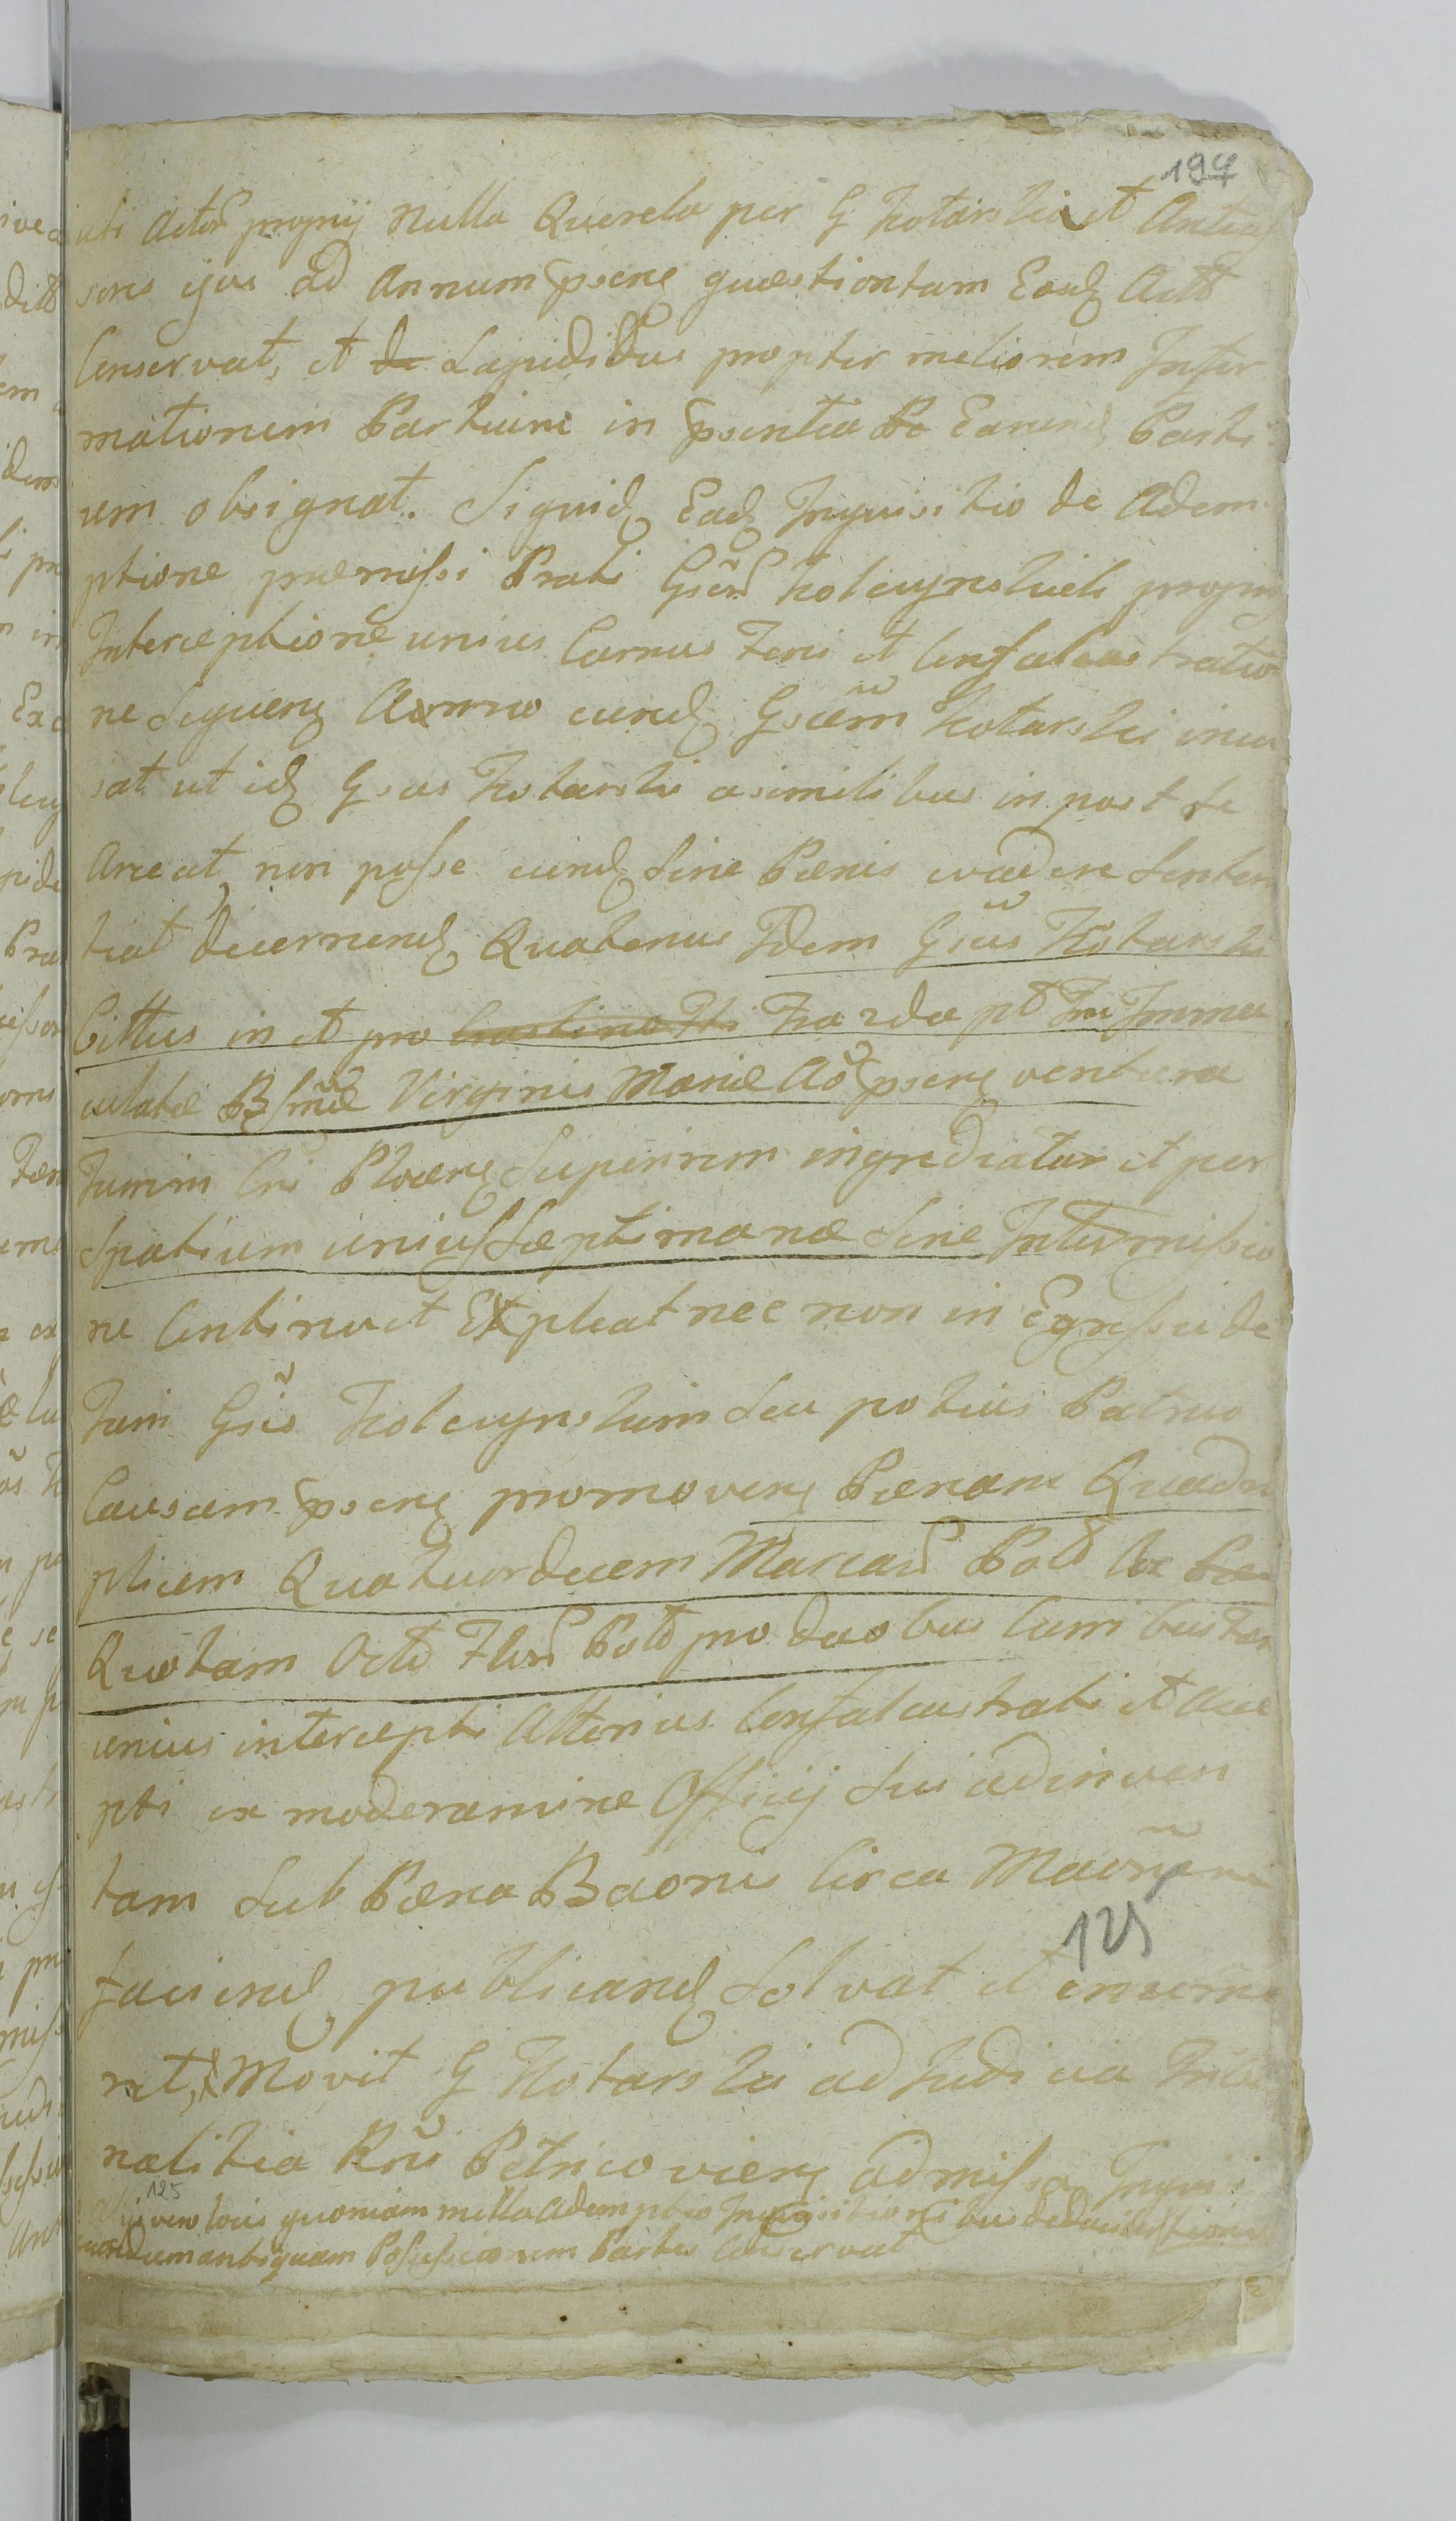 197
uti Actor proprij nulla Querela per G Kotarski et Antecess
sores ejus ad Annum psene quaestiontam Easd Actt
Conservat, et de Lapidibus propter meliorem Infor
mationem Partium in psentia Pa Earund Parti
um obsignat. Siquid Ead Inquisitio de Adem
ptione praemissi Prati Gser Kolczynskich propry
Interceptione unius Currus Feni et Confalcastratio
ne Sequen Anno eund Gsum Kotarski incu
sat ut id Gsus Kotarski a similibus in post se
Arceat, non posse eund Sine Paenis evadere Senten
tiat decernend Quatenus Idem Gsus Kotarski
Cittus in et pro Crastino Fti Frda pt Fti Imma
culatae Bssmae Virginis Mariae Ao psen ventura
Turrim Cri Plocen Superiorem ingrediatur et per
Spatium unius Septimanae Sine Intermissio
ne Continuet Expleat nec non in Egressu de
Turri Gso Kolczynskim Seu potius Patruo
Causam psen promoven Paenam Quadru
plicem Quatuordecem Marcar Poll ac
Quotam Octo Flor Poll pro duobus Curribus Faen
unius intercepti Alterius Confalcastrati et Acce
pti ex moderamine Officij Sui adinven
tam Sub Paena Baonis circa
125
faciend publicand Solvat et enume
ret, Movit G Kotarski ad Judicia Tribu
nalitia Rni Petricovien admissa Inquisi
125
Alijs vero locis quoniam nulla Ademptio Inquisitionibus deducitur
eundem antiquam Possessionem Partes Conservat